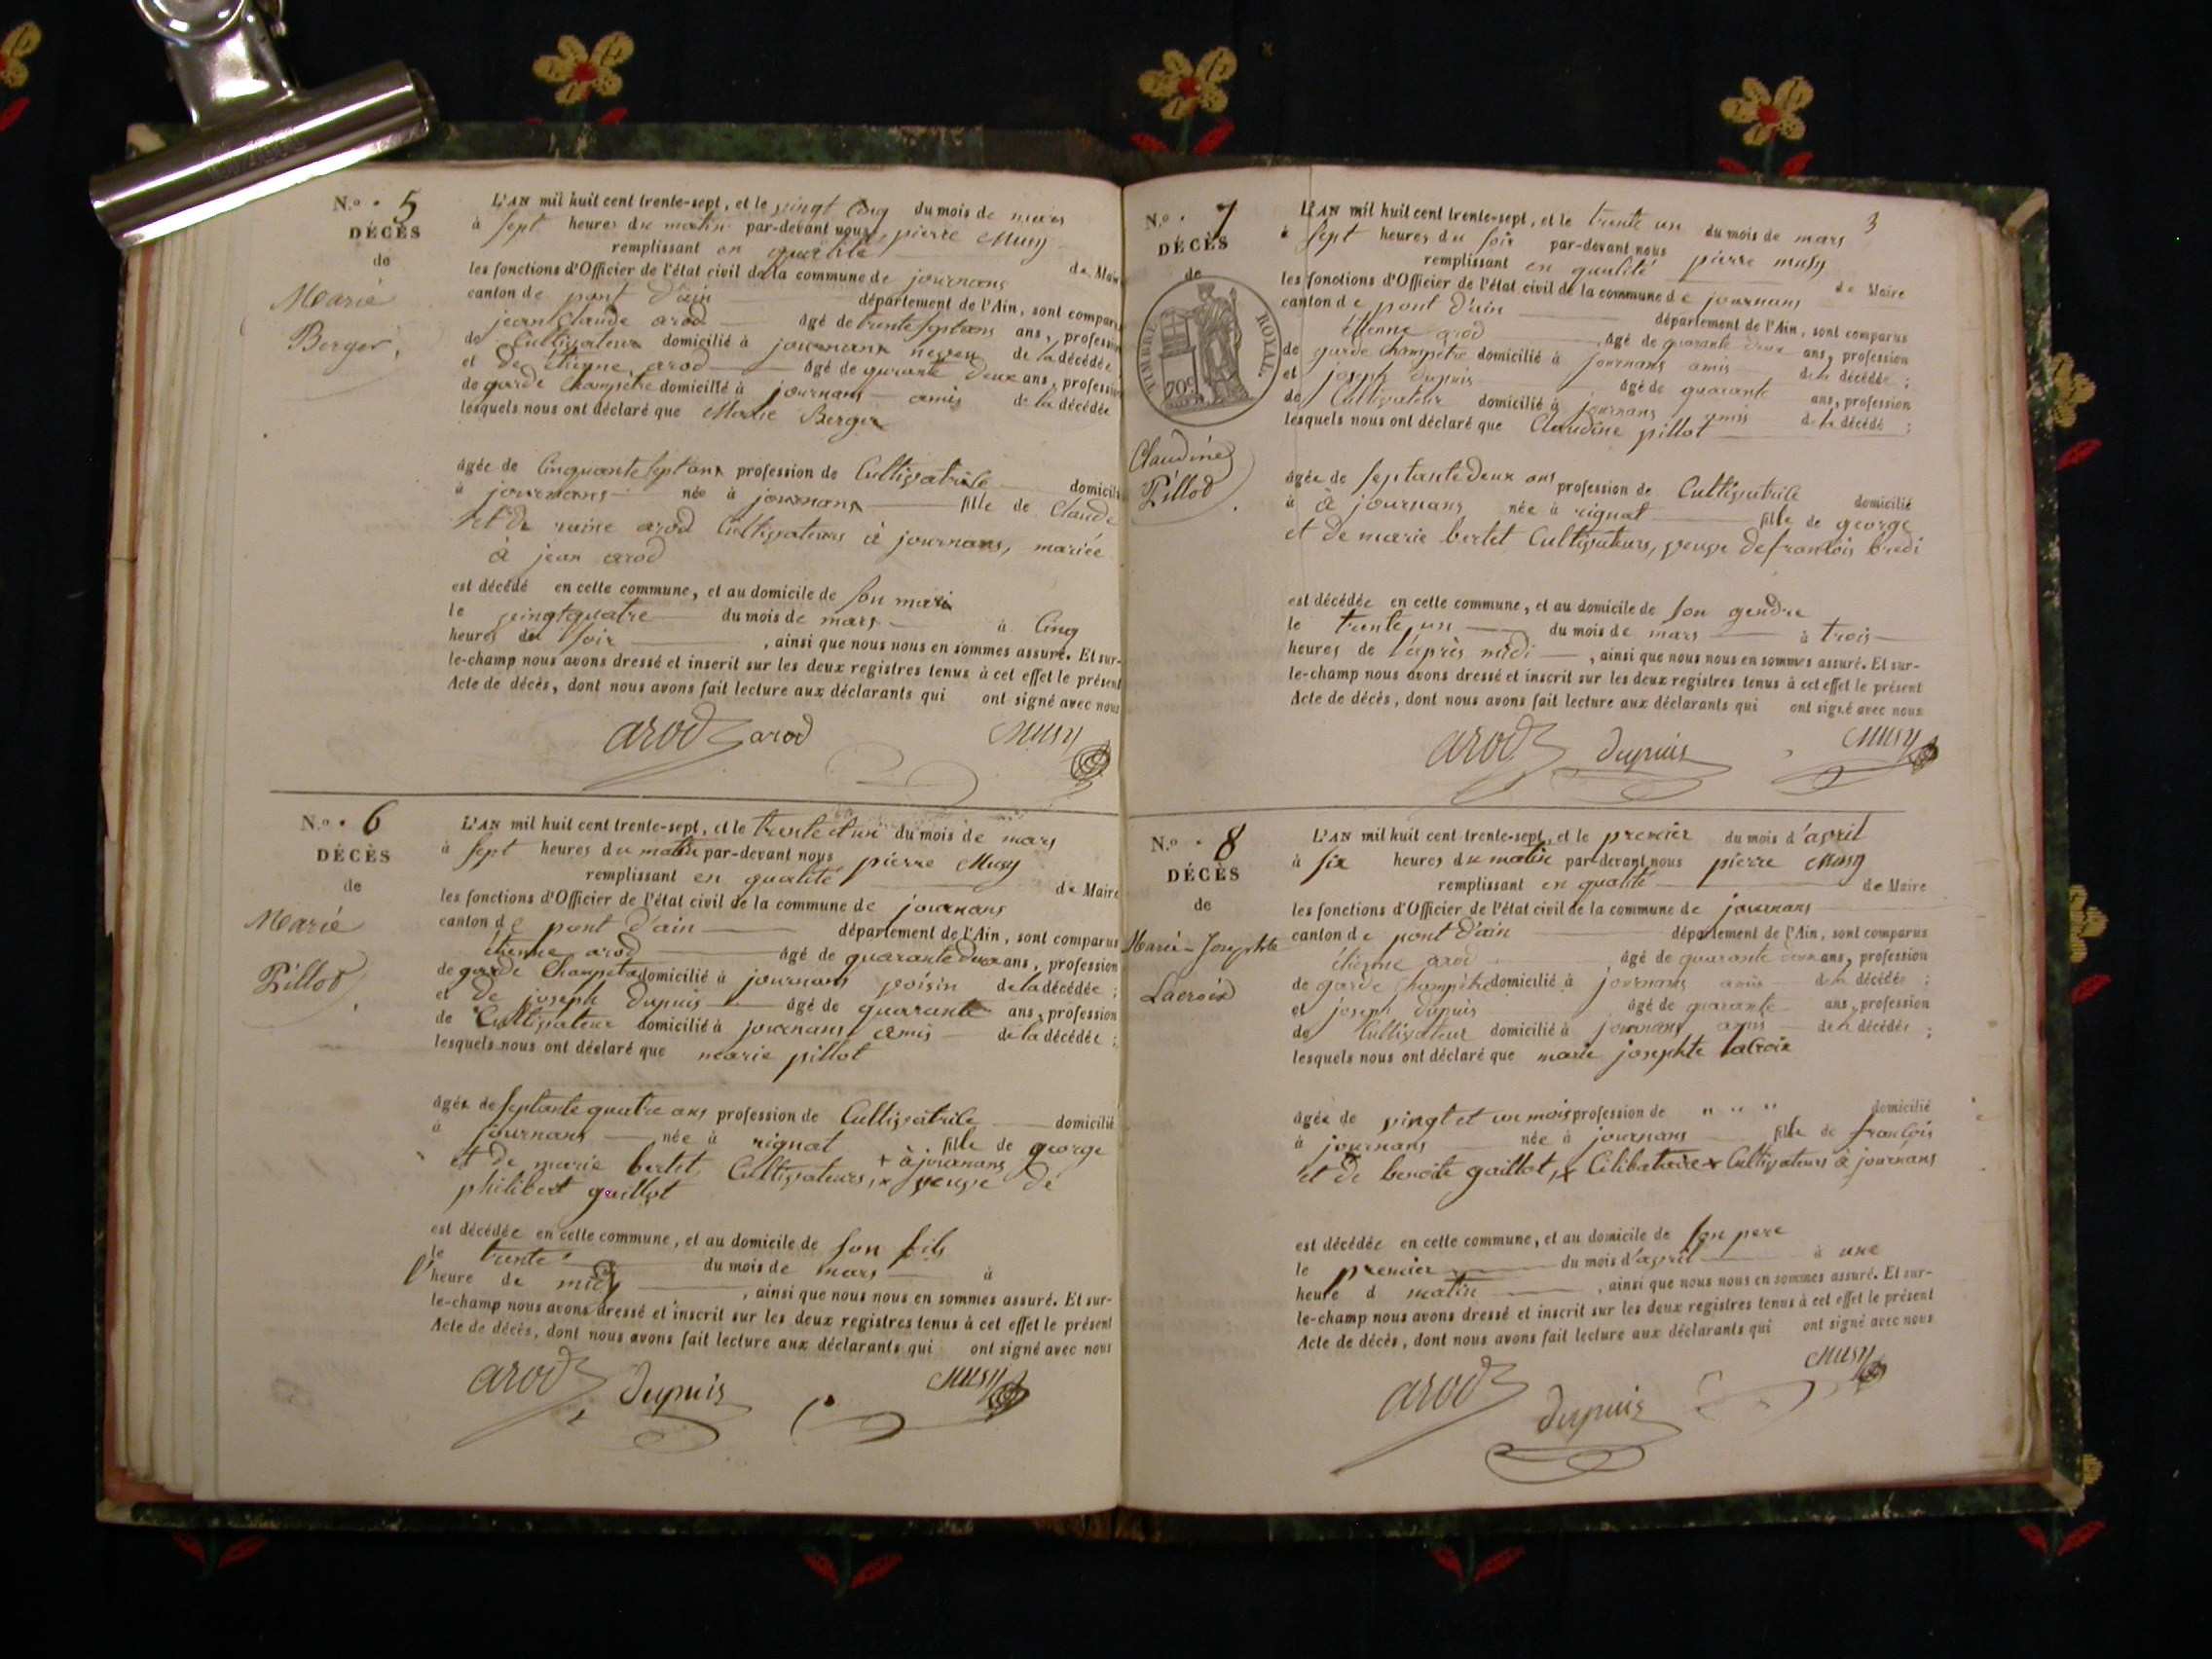 N.º 5
DÉCÈS
de
Marie
Berger
L'AN mil huit cent trente-sept, et le vingt cinq du mois de mars
à sept heures du matin par-devant nous pierre Musy
remplissant en qualité de Maire
les fonctions d'Officier de l'état civil de la commune de journans
canton de pont d'ain département de l'Ain, sont comparus
jean Claude arod âgé de trente sept ans ans, profession
de Cultivateur domicilié à journans neveu de la décédée
et de étienne arod âgé de quarante deux ans, profession
de garde Champetre domicilié à journans amis de la décédée
lesquels nous ont déclaré que Marie Berger
âgée de Cinquante sept ans profession de Cultivatrice domicilié
à journans née à journans fille de Claude
et de raine arod Cultivateurs à journans, mariée
à jean arod
est décédé en cette commune, et au domicile de son mari
le vingt quatre du mois de mars à Cinq
heures du soir, ainsi que nous nous en sommes assuré. Et sur-
le-champ nous avons dressé et inscrit sur les deux registres tenus à cet effet le présent
Acte de décès, dont nous avons fait lecture aux déclarants qui ont signé avec nous
arod arod Musy
N.º 6
DÉCÈS
de
Marie
Pillod
L'AN mil huit cent trente-sept, et le trente et un du mois de mars
à sept heures du matin par-devant nous pierre Musy
remplissant en qualité de Maire
les fonctions d'Officier de l'état civil de la commune de journans
canton de pont d'ain département de l'Ain, sont comparus
étienne arod âgé de quarante deux ans, profession
de garde Champetre domicilié à journans voisin de la décédée ;
et de joseph dupuis âgé de quarante ans, profession
de Cultivateur domicilié à journans amis de la décédée ;
lesquels nous ont déclaré que marie pillot
âgée de septante quatre ans profession de Cultivatrice domicilié
à journans née à rignat fille de george
et de marie bertet Cultivateurs, x + à journans veuve de
philibert guillot
est décédée en cette commune, et au domicile de son fils
le trente du mois de mars à
l'heure de midy, ainsi que nous nous en sommes assuré. Et sur-
le-champ nous avons dressé et inscrit sur les deux registres tenus à cet effet le présent
Acte de décès, dont nous avons fait lecture aux déclarants qui ont signé avec nous
arod dupuis Musy
3
N.º 7
DÉCÈS
de
TIMBRE ROYAL.
70c
Claudine
Pillod
L'AN mil huit cent trente-sept, et le trente un du mois de mars
à sept heures du soir par-devant nous pierre musy
remplissant en qualité de Maire
les fonctions d'Officier de l'état civil de la commune de journans
canton de pont d'ain département de l'Ain, sont comparus
étienne arod âgé de quarante deux ans, profession
de garde Champetre domicilié à journans amis de la décédée ;
et joseph dupuis âgé de quarante ans, profession
de Cultivateur domicilié à journans amis de la décédé ;
lesquels nous ont déclaré que Claudine pillot
âgée de septante deux ans profession de Cultivatrice domicilié
à à journans née à rignat fille de george
et de marie bertet Cultivateurs, veuve de francois
est décédée en cette commune, et au domicile de son gendre
le trente un du mois de mars à trois
heures de l'après midi, ainsi que nous nous en sommes assuré. Et sur-
le-champ nous avons dressé et inscrit sur les deux registres tenus à cet effet le présent
Acte de décès, dont nous avons fait lecture aux déclarants qui ont signé avec nous
arod dupuis Musy
N.º 8
DÉCÈS
de
Marie-Josephte
Lacroix
L'AN mil huit cent trente-sept, et le premier du mois d'avril
à six heures du matin par-devant nous pierre Musy
remplissant en qualité de Maire
les fonctions d'Officier de l'état civil de la commune de journans
canton de pont d'ain département de l'Ain, sont comparus
étienne arod âgé de quarante deux ans, profession
de garde Champetre domicilié à journans amis de la décédée ;
et joseph dupuis âgé de quarante ans, profession
de Cultivateur domicilié à journans amis de la décédée ;
lesquels nous ont déclaré que marie josephte laCroix
âgée de vingt et un mois profession de " " " domicilié
à journans née à journans fille de francois
et de benoite gaillot, x Célibataire x Cultivateurs à journans
est décédée en cette commune, et au domicile de son pere
le premier du mois d'avril à une
heure d matin, ainsi que nous nous en sommes assuré. Et sur-
le-champ nous avons dressé et inscrit sur les deux registres tenus à cet effet le présent
Acte de décès, dont nous avons fait lecture aux déclarants qui ont signé avec nous
arod dupuis Musy